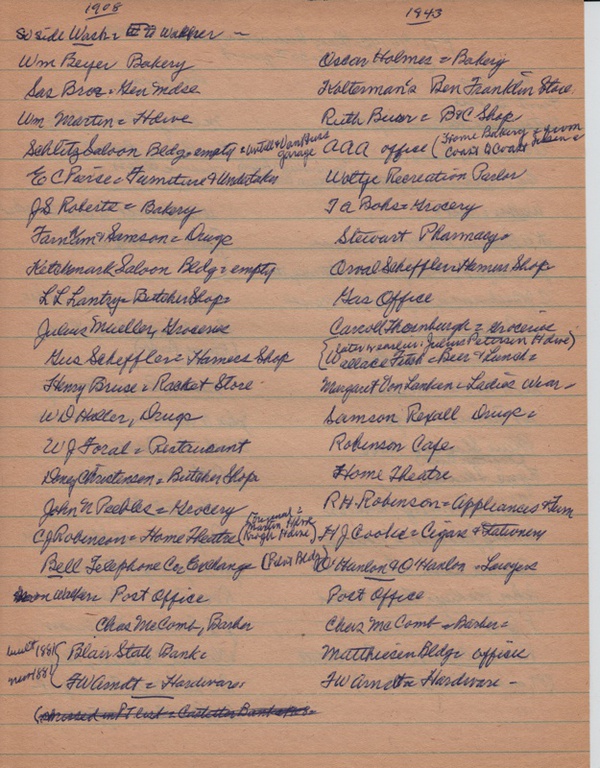 1908 1943
So side Wash = III to Walker —
Wm Beyer Bakery Oscar Holmes = Bakery
Sas Bros = Gen Mdse Kolterman's Ben Franklin Store.
Wm Martin = Hdwe Ruth Buser = B&C Shop
Schlitz Saloon Bldg = empty = garage AAA office (Home Bakery = from Coast to Coast
E C Pierce = Furniture & Undertaker Woltje Recreation Parlor
J.S. Roberts = Bakery T A Bohs = Grocery
Farnham & Samson = Drugs Stewart Pharmacy =
Ketchmark Saloon Bldg = empty Orval Scheffler = Harness Shop
L L Lantry = Butcher Shop = Gas Office
Julius Mueller, Groceries Carroll Thornburgh = Groceries
Gus Scheffler = Harness Shop (later Julius Petersen Hdwe)
Wallace Fitch = Beer & Lunch =
Henry Bruse = Racket Store Margaret Von Lanken = Ladies Wear =
W D Haller, Drugs Samson Rexall Drugs =
W J Foral = Restaurant Robinson Cafe
Christensen = Butcher Shop Home Theatre
John N Peebles = Grocery R.H. Robinson = Appliances & Furn
C J Robinson = Home Theatre H J Cooke = Cigars & Stationery
Bell Telephone Co. Exchange (Pilot Bldg) O'Hanlon & O'Hanlon = Lawyers
Walker = Post Office Post Office
Chas McComb, Barber Chas McComb = Barber =
built 1881 Blair State Bank = Matthiesen Bldg = offices
1881 F W Arndt = Hardware = F W Arndt = Hardware —